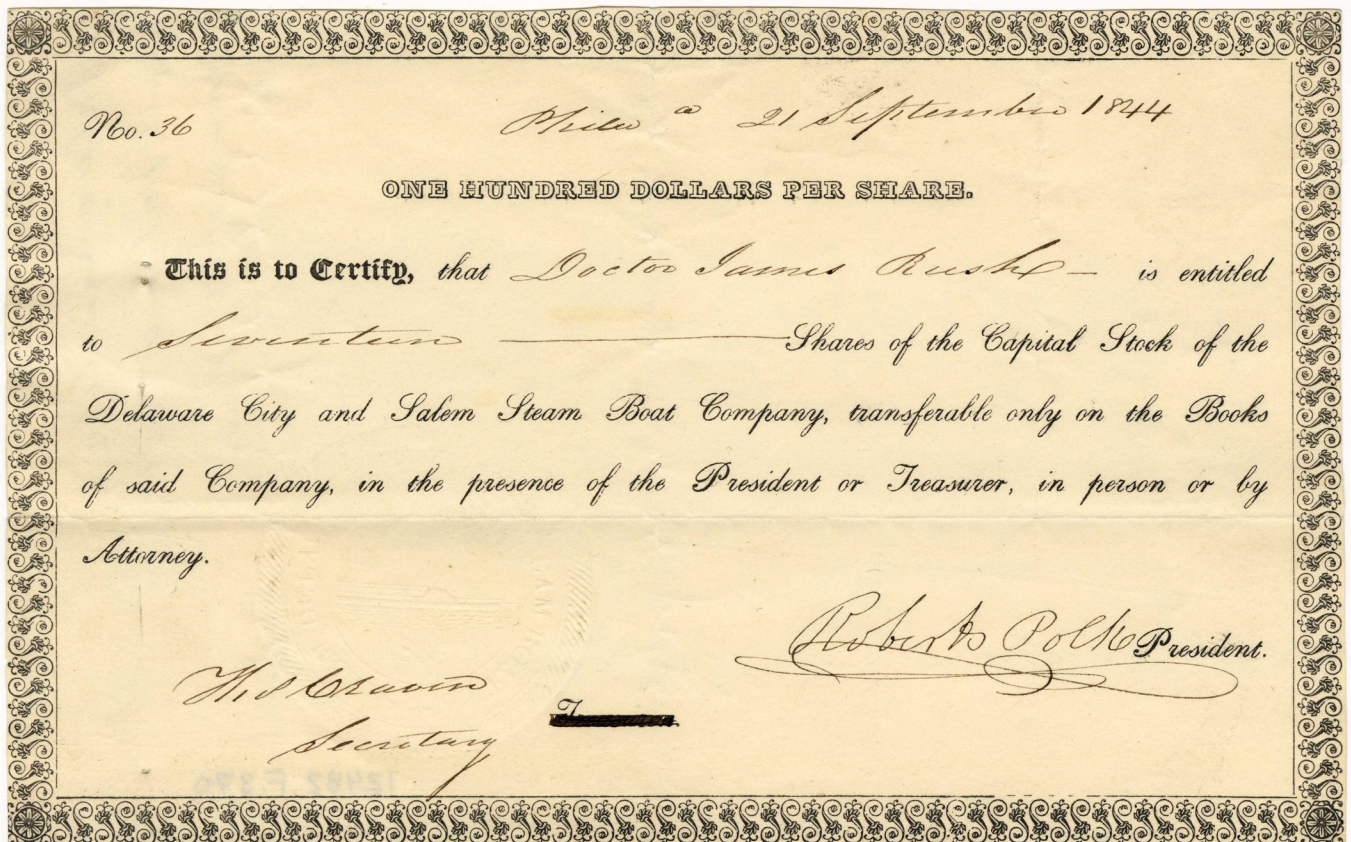 No. 36 Phila 21 September 1844
ONE HUNDRED DOLLARS PER SHARE.
This is to Certify, that Doctor James Rush is entitled
to Seventeen Shares of the Capital Stock of the
Delaware City and Salem Steam Boat Company, transferable only on the Books
of said Company, in the presence of the President or Treasurer, in person or by
Attorney.
Polk President.
Thos Craven
Secretary